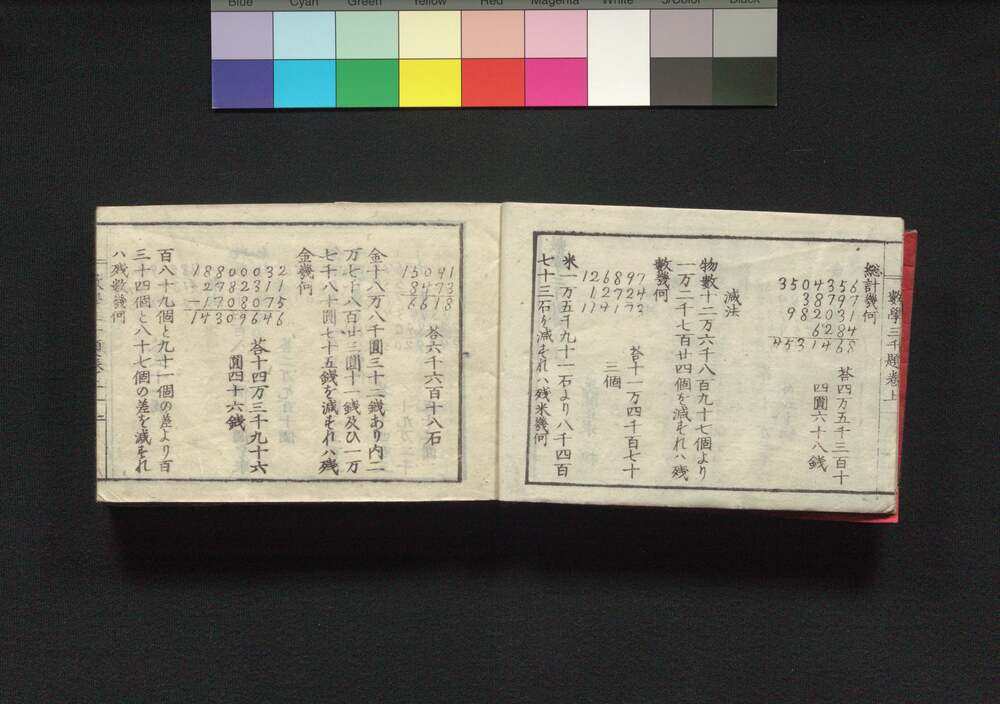 Blue Cyan Green Yellow Red Magenta White 3/Color Black
數學三千題卷上
總計幾何
3504356
38797
982031
6284
4531468
答四万五千三百十
四圓六十八錢
減法
物數十二万六千八百九十七個より
一万二千七百廿四個を減ずれハ残
數幾何
126897
12724
114173
答十一万四千百七十
三個
米一万五千九十一石より八千四百
七十三石を減ずれハ残米幾何
15091
8473
6618
答六千六百十八石
金十八万八千圓三十二錢あり内二
万七千八百廿三圓十一錢及ひ一万
七千八十圓七十五錢を減ずれハ残
金幾何
18800032
2782311
1708075
14309646
答十四万三千九十六
圓四十六錢
百八十九個と九十一個の差より百
三十四個と八十七個の差を減ずれ
ハ残數幾何